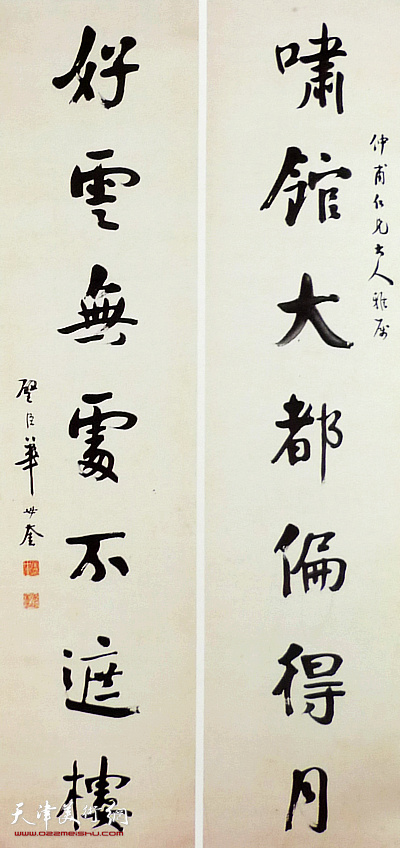 仲甫仁兄大人雅属
啸館大都偏得月
好雲無處不遮樓
璧臣華世奎
天津美術網
www.022meishu.com